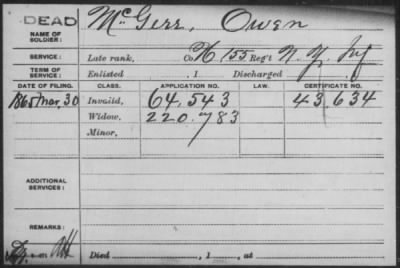 DEAD
NAME OF SOLDIER: McGerr, Owen
SERVICE: Late rank, Co. H, 155 Reg't N.Y. Inf
TERM OF SERVICE: Enlisted , 1 Discharged , 1
DATE OF FILING. CLASS. APPLICATION NO. LAW. CERTIFICATE NO.
1865 Mar, 30 Invalid, 64.543 43.634
Widow, 220.783
Minor,
ADDITIONAL SERVICES:
REMARKS:
Died , 1 , at